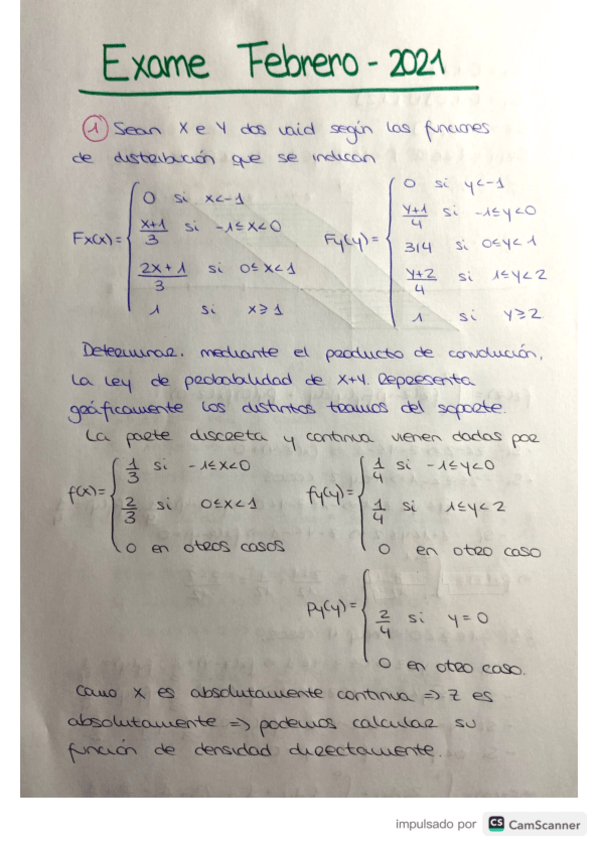 Exame Febrero - 2021
1 Sean X e Y dos vaid según las funciones
de distribución que se indican
Fx(x) = { 0 si x<-1
x+1/3 si -1≤x<0
2x+1/3 si 0≤x<1
1 si x≥1
Fy(y) = { 0 si y<-1
y+1/4 si -1≤y<0
3/4 si 0≤y<1
y+2/4 si 1≤y<2
1 si y≥2
Determinar, mediante el producto de convolución,
la ley de probabilidad de x+y. Representa
gráficamente los distintos tramos del soporte.
La parte discreta y continua vienen dadas por
f(x) = { 1/3 si -1≤x<0
2/3 si 0≤x<1
0 en otros casos
fy(y) = { 1/4 si -1≤y<0
1/4 si 1≤y<2
0 en otro caso
Py(y) = { 2/4 si y=0
0 en otro caso.
Como X es absolutamente continua => Z es
absolutamente => podemos calcular su
función de densidad directamente.
impulsado por CS CamScanner